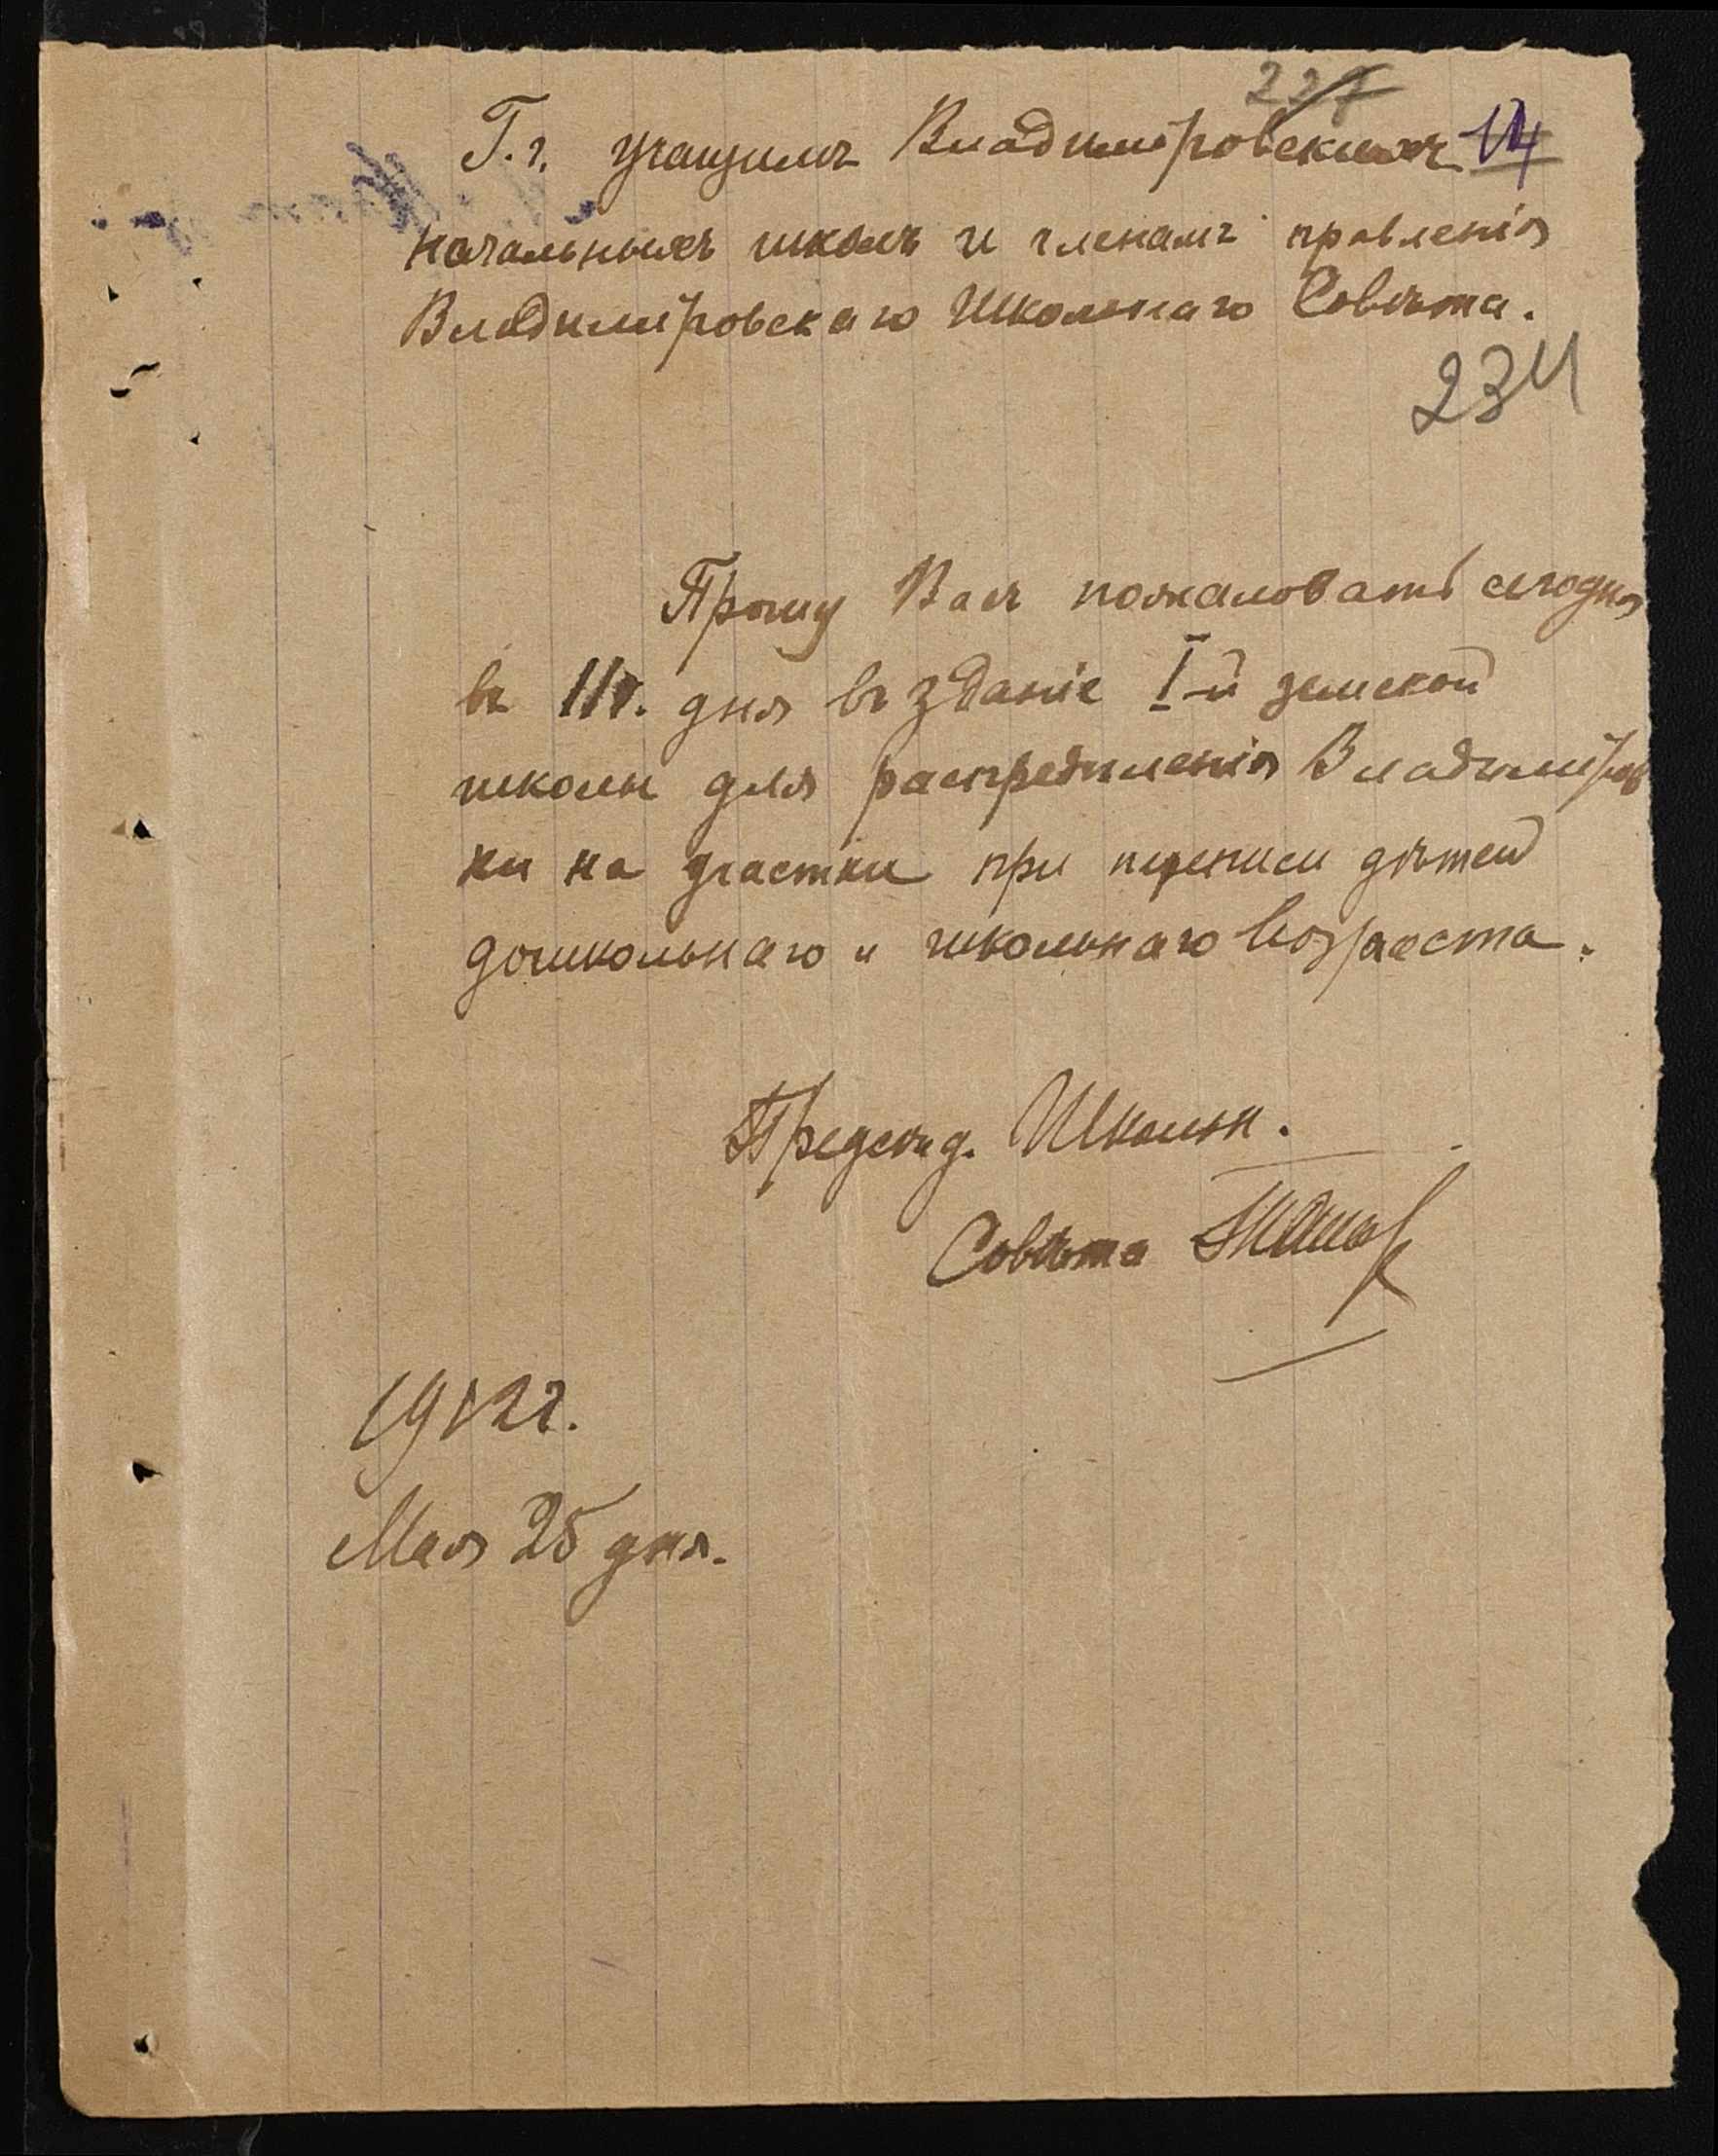 227
Г.г. учащимъ Владимiровскихъ 14
начальныхъ школъ и членамъ правленiя
Владимiровскаго Школьнаго Совѣта.
234
Прошу Васъ пожаловать сегодня
въ 11 ч. дня въ зданiе I-й земской
школы для распредѣленiя Владимiров
ки на участки при переписи дѣтей
дошкольнаго и школьнаго возраста.
Предсѣд. Школьн.
Совѣта
1912 г.
Мая 25 дня.